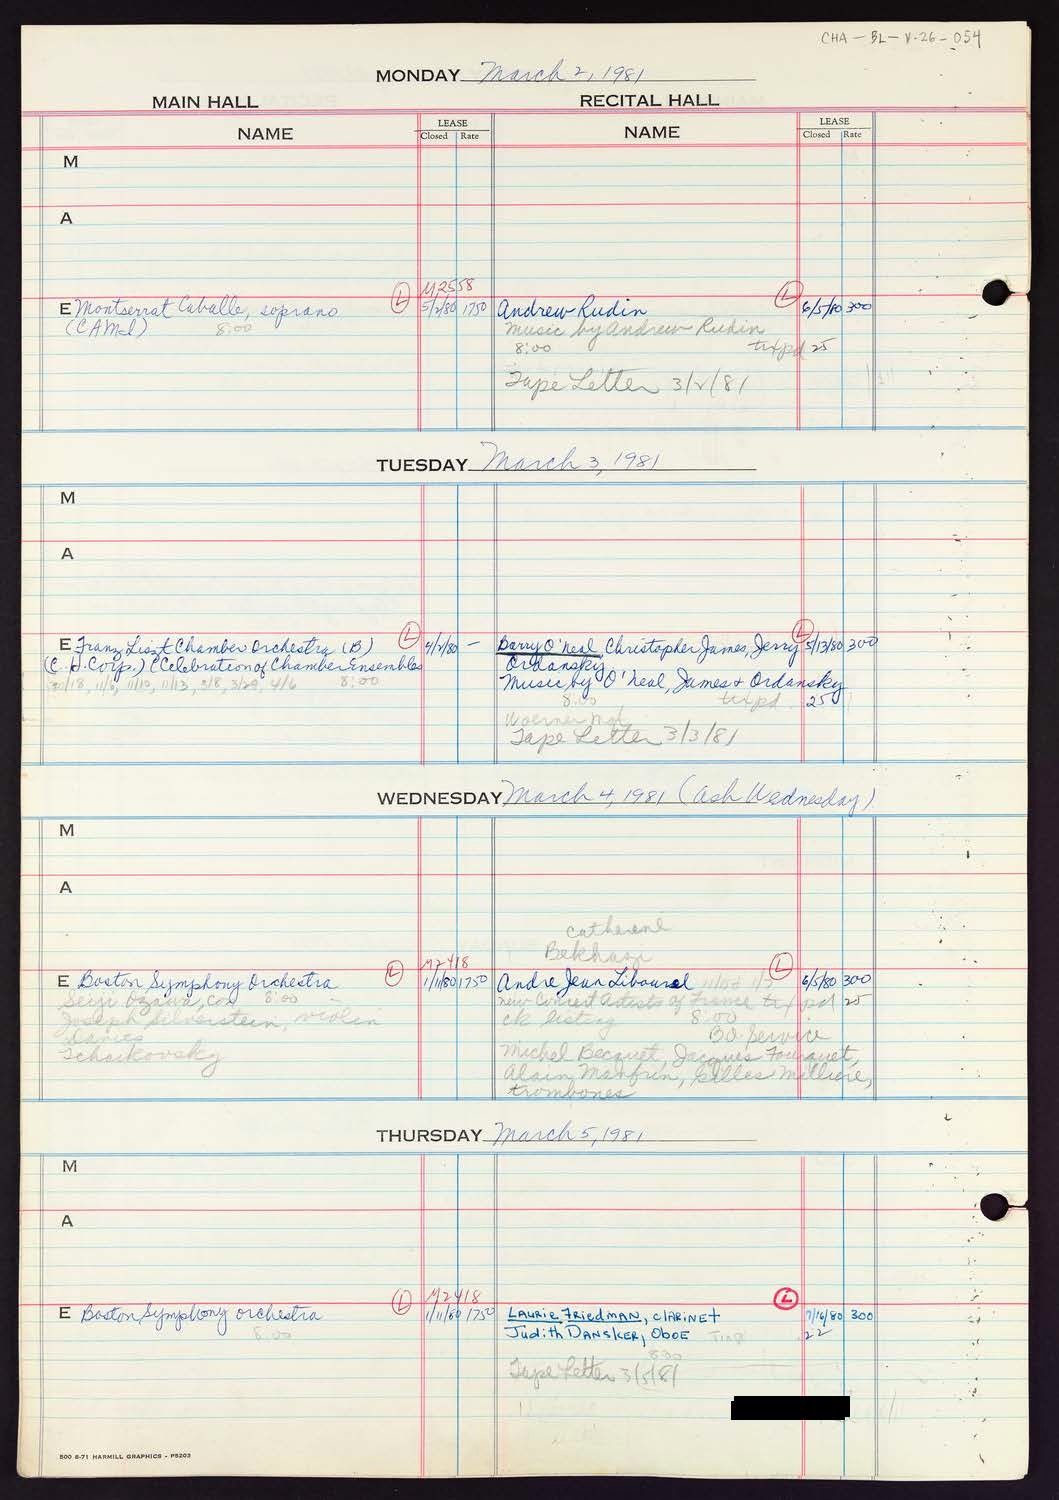 CHA-BL-V-26-054
MONDAY March 2, 1981
MAIN HALL RECITAL HALL
NAME LEASE Closed Rate NAME LEASE Closed Rate
M
A
M2558
E Montserrat Caballe, soprano L 5/2/80 1750 Andrew Rudin L 6/5/80 300
(CAMI) 8:00 Music by Andrew Rudin
8:00 tx pd 25
Tape Letter 3/2/81
TUESDAY March 3, 1981
M
A
E Franz Liszt Chamber Orchestra (B) L 4/2/80 - Barry O'Neal, Christopher James, Jerry L 5/13/80 300
(C.H. Corp.) (Celebration of Chamber Ensembles Ordansky
10/18, 11/6, 11/10, 11/13, 3/8, 3/29, 4/6 8:00 Music by O'Neal, James + Ordansky
8:00 tx pd 25
Woerner Mgt
Tape Letter 3/3/81
WEDNESDAY March 4, 1981 (Ash Wednesday)
M
A
Catherine
M2418
E Boston Symphony Orchestra L 1/11/80 1750 Andre Jean Libourel L 6/5/80 300
Seiji Ozawa, con 8:00 New Concert Artists of France tx pd 25
Joseph Silverstein, violin ck listing 8:00
Davies BO Service
Tchaikovsky Michel Becquet, Jacques Fourquet,
Alain Manfrin, Gilles Milliere,
trombones
THURSDAY March 5, 1981
M
A
M2418
E Boston Symphony Orchestra L 1/11/80 1750 Laurie Friedman, clarinet L 7/16/80 300
8:00 Judith Dansker, Oboe 22
8:30
Tape Letter 3/5/81
500 6-71 HARMILL GRAPHICS - P5203